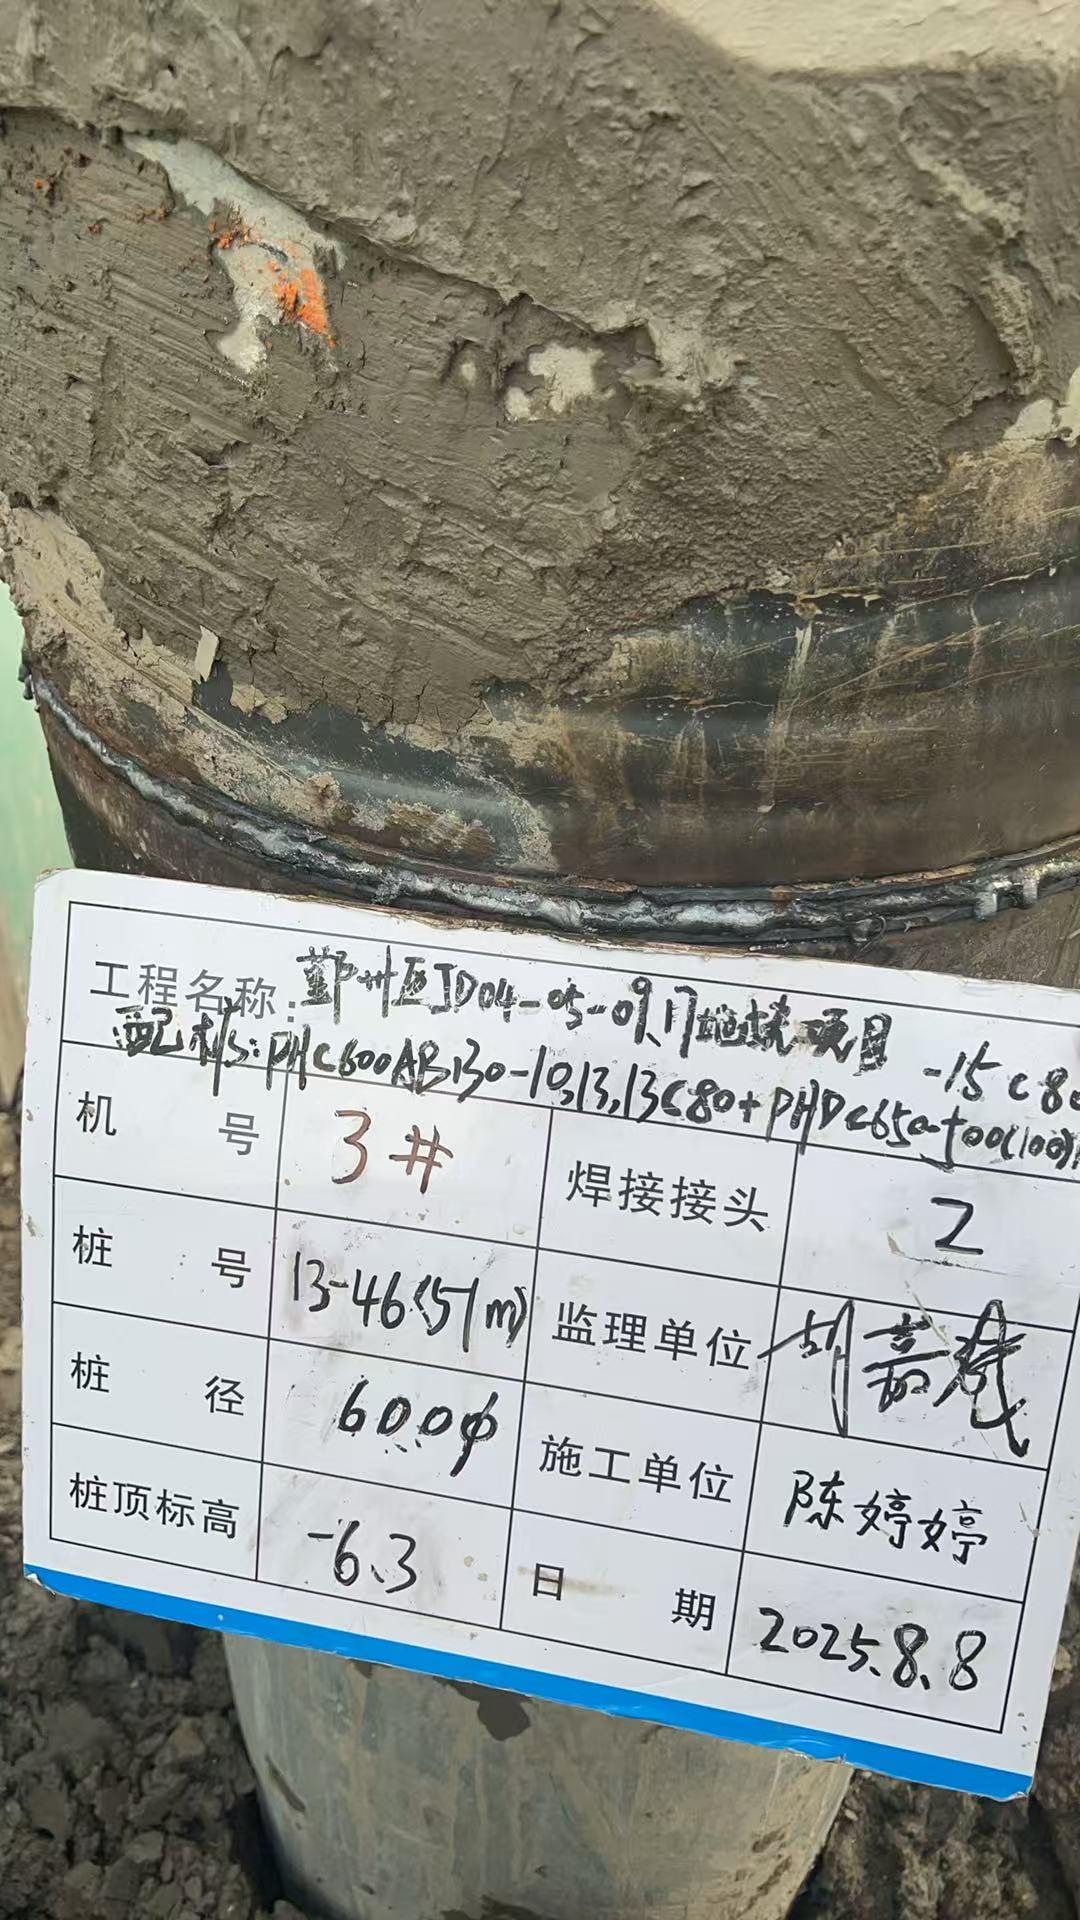 工程名称：鄞州区JD04-05-09.17地块项目
配桩：PHC600AB130-10,13,13C80+PHDC650-500(100) -15C80
机号 3# 焊接接头 2
桩号 13-46(51m) 监理单位 胡嘉
桩径 600φ 施工单位 陈婷婷
桩顶标高 -6.3 日期 2025.8.8